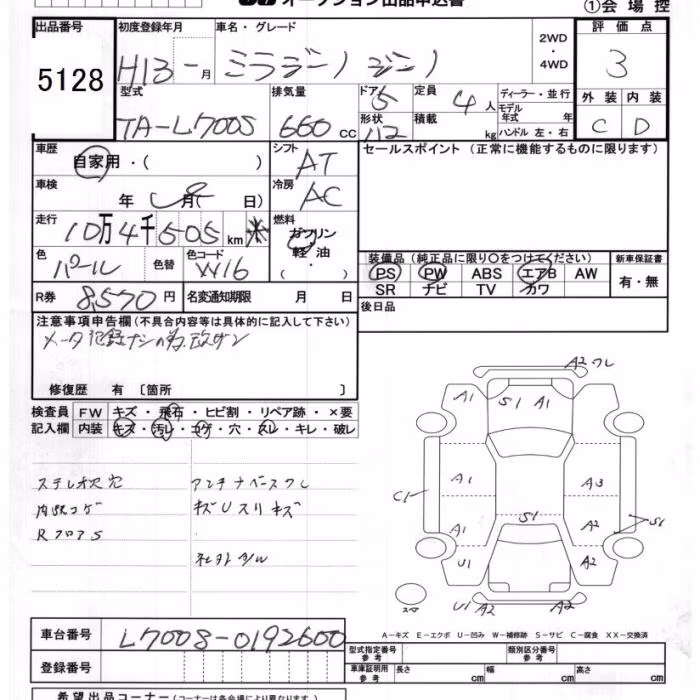 オークション出品申込書
①会場控
出品番号 5128
初度登録年月 H13 - 月
車名・グレード ミラジーノ ジーノ
2WD・4WD
評価点 3
外装 C 内装 D
型式 TA-L700S
排気量 660 cc
ドア 5
形状
定員 4 人
積載 kg
ディーラー・並行
モデル年式 年
ハンドル 左・右
車歴 自家用・( )
シフト AT
セールスポイント (正常に機能するものに限ります)
車検 年 月( 日)
冷房 AC
走行 10万4千505 km ※
燃料 ガソリン・軽油・( )
色 パール 色替
色コード W16
装備品 (純正品に限り○をつけてください)
新車保証書 有・無
PS PW ABS エアB AW
SR ナビ TV カワ
R券 8,570 円
名変通知期限 月 日
後日品
注意事項申告欄 (不具合内容等は具体的に記入して下さい)
メータ記録ナシの為改ザン
修復歴 有 〔箇所 〕
検査員記入欄
FW キズ・飛石・ヒビ割・リペア跡・×要
内装 キズ・汚レ・コゲ・穴・スレ・キレ・破レ
ステレオ沢穴 アンテナベースワレ
内張コゲ キズUスリキズ
RフロアS
A2 ワレ
A1 S1 A1 A1
A1 A3
C1
A1 S1 A2 S1
U1 A2
スペア
U1 A2 A2
A-キズ E-エクボ U-凹み W-補修跡 S-サビ C-腐食 XX-交換済
車台番号 L700S-0192600
登録番号
型式指定番号 参考
類別区分番号 参考
車庫証明用 参考 長さ cm 幅 cm 高さ cm
希望出品コーナー (コーナーは各会場により異なります)